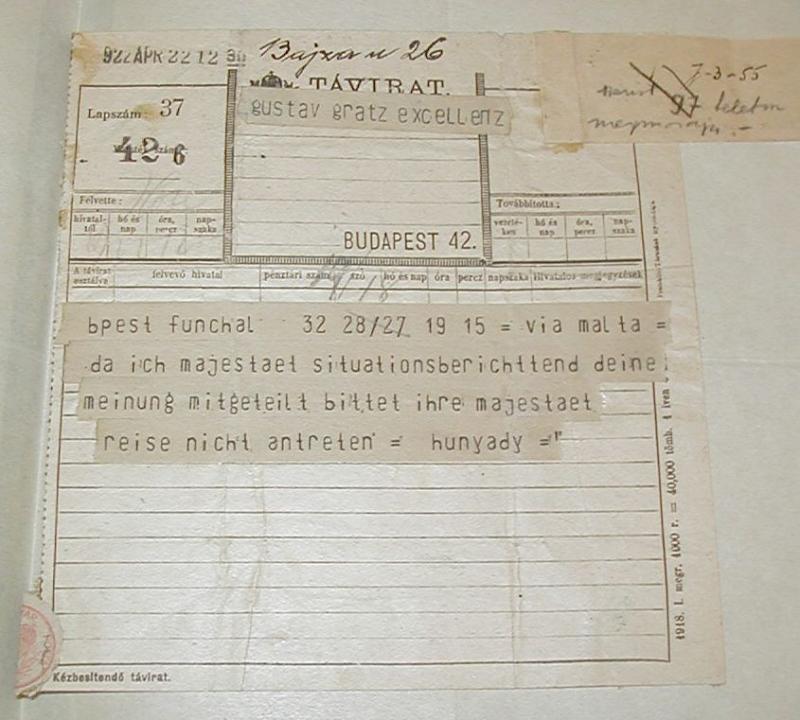 922 APR 22 12 30
Bajza u 26
TÁVIRAT.
7-3-55
Lapszám: 37
gustav gratz excellenz
97
426
Felvette:
Továbbította:
hivatal-tól hó és nap óra, percz nap-szaka
hó és nap óra, percz nap-szaka
BUDAPEST 42.
A távirat osztálya felvevő hivatal pénztári szám szó hó és nap óra percz napszaka Hivatalos megjegyzések
bpest funchal 32 28/27 19 15 = via malta =
da ich majestaet situationsberichttend deine
meinung mitgeteilt bittet ihre majestaet
reise nicht antreten = hunyady ="
1918. I. megr. 4000 r. = 40,000 tömb.
Kézbesítendő távirat.